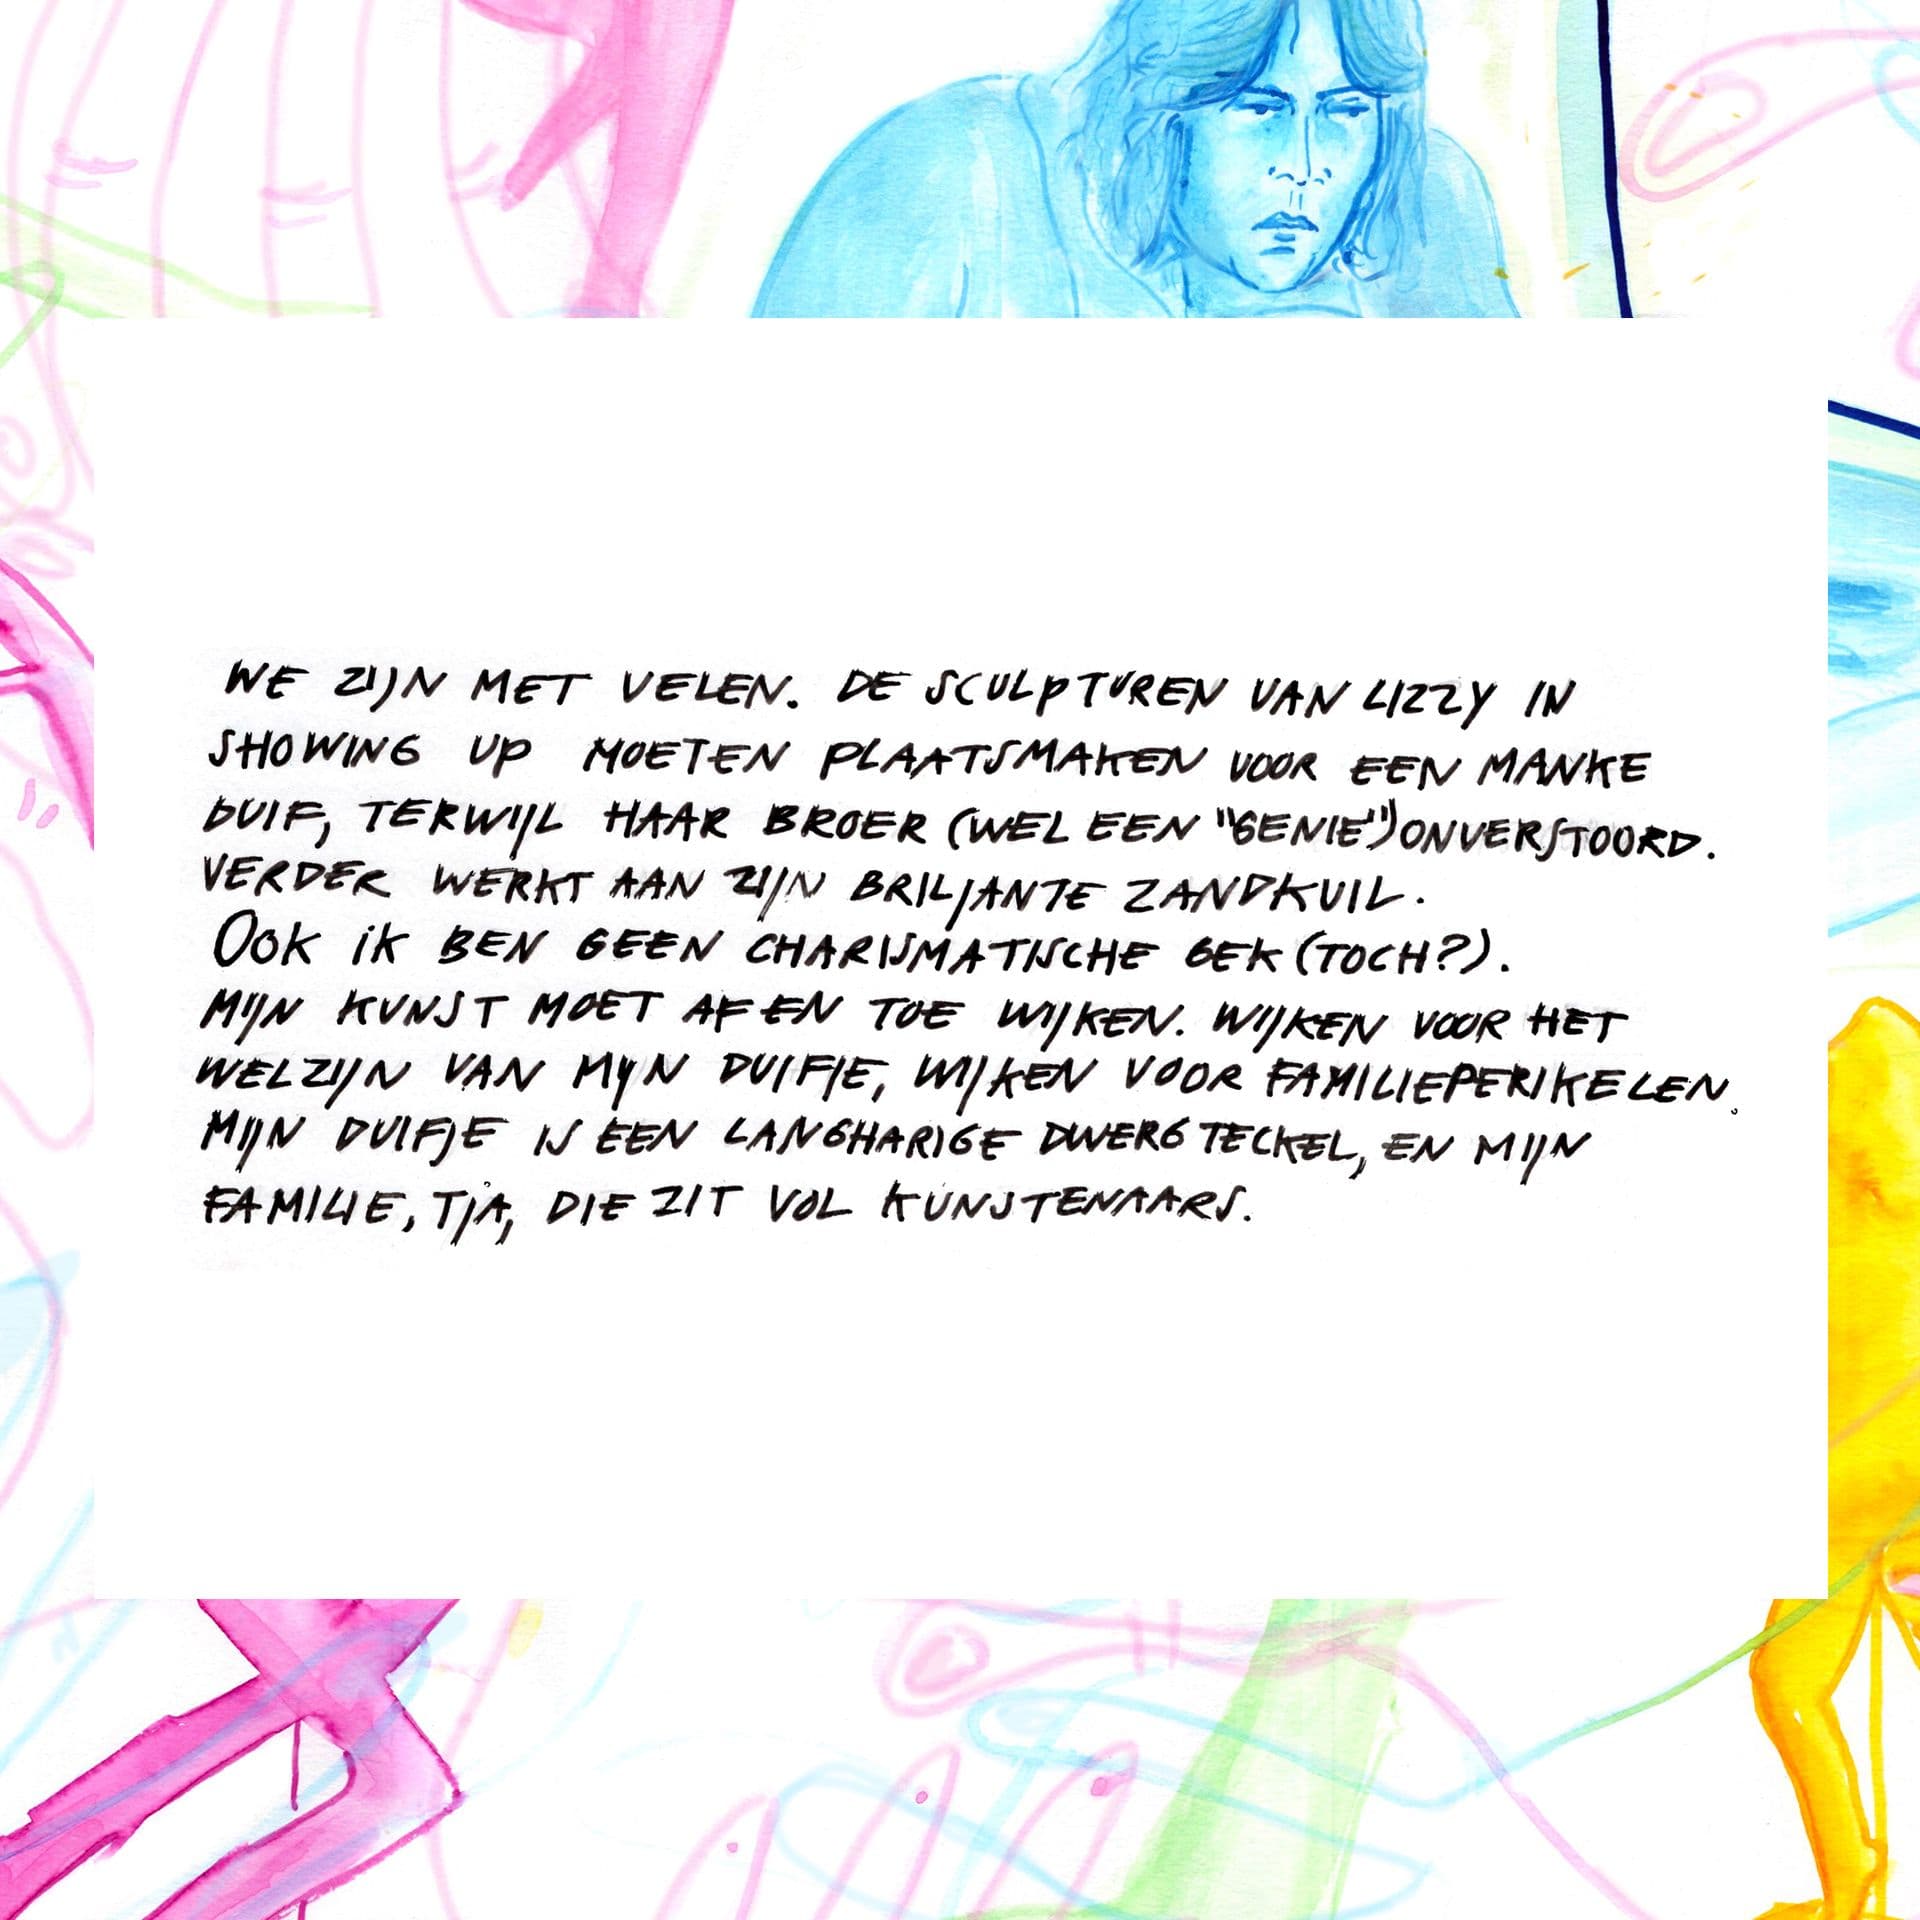 WE ZIJN MET VELEN. DE SCULPTUREN VAN LIZZY IN
SHOWING UP MOETEN PLAATSMAKEN VOOR EEN MANKE
DUIF, TERWIJL HAAR BROER (WEL EEN "GENIE") ONVERSTOORD.
VERDER WERKT AAN ZIJN BRILJANTE ZANDKUIL.
OOK IK BEN GEEN CHARISMATISCHE GEK (TOCH?).
MIJN KUNST MOET AF EN TOE WIJKEN. WIJKEN VOOR HET
WELZIJN VAN MIJN DUIFJE, WIJKEN VOOR FAMILIEPERIKELEN.
MIJN DUIFJE IS EEN LANGHARIGE DWERG TECKEL, EN MIJN
FAMILIE, TJA, DIE ZIT VOL KUNSTENAARS.